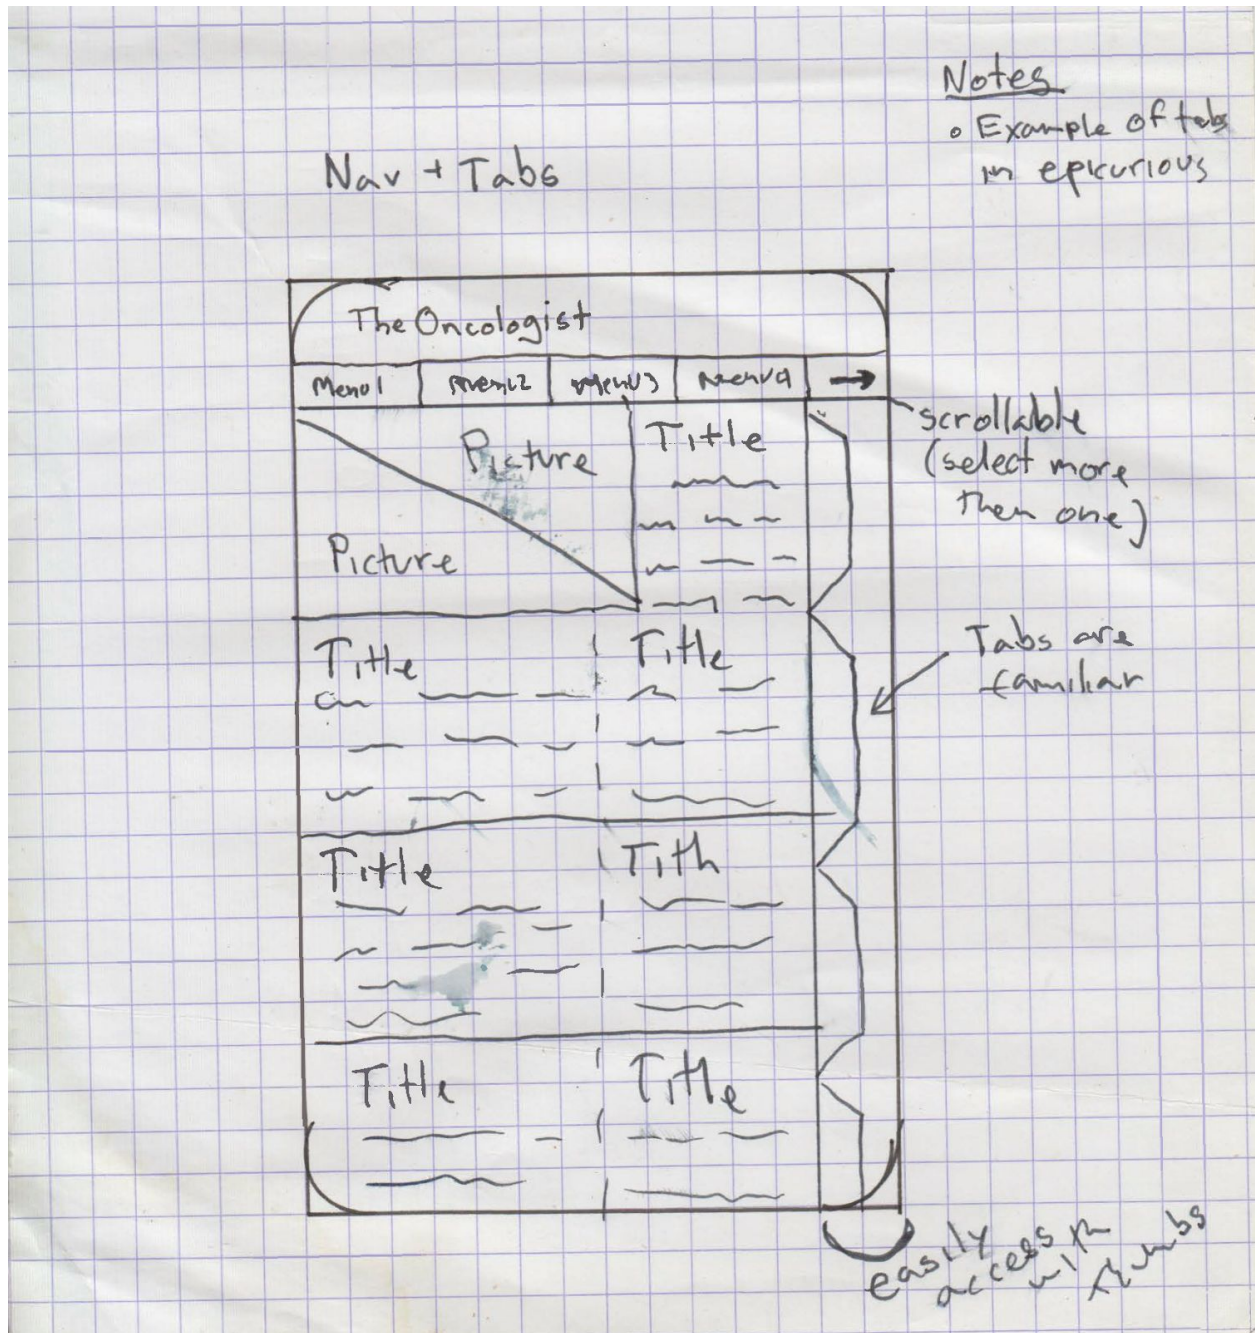 Notes
• Example of tabs
in epicurious
Nav + Tabs
The Oncologist
Menu1 Menu2 Menu3 Menu4 →
scrollable
(select more
then one)
Picture
Picture
Title
Tabs are
familiar
Title Title
Title Title
Title Title
easily
access
with
thumbs